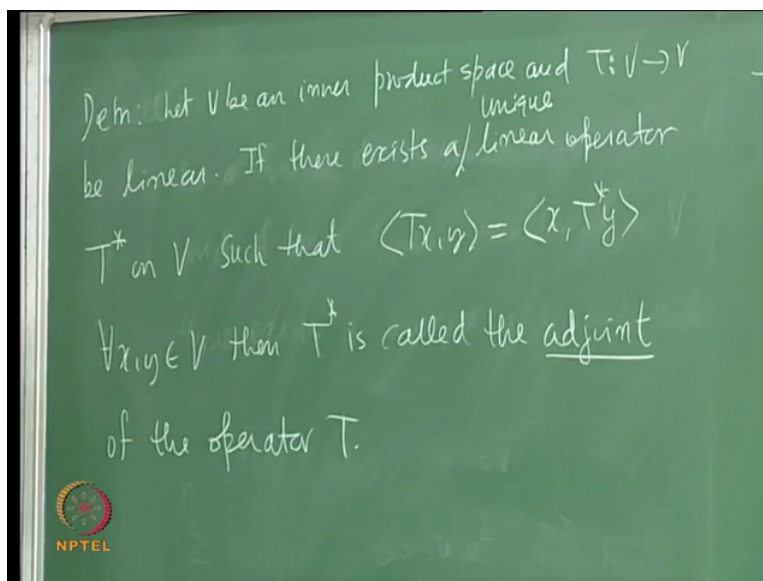 Defn: Let V be an inner product space and T: V → V
unique
be linear. If there exists a / linear operator
T* on V such that ⟨Tx, y⟩ = ⟨x, T*y⟩
∀ x, y ∈ V then T* is called the adjoint
of the operator T.
NPTEL